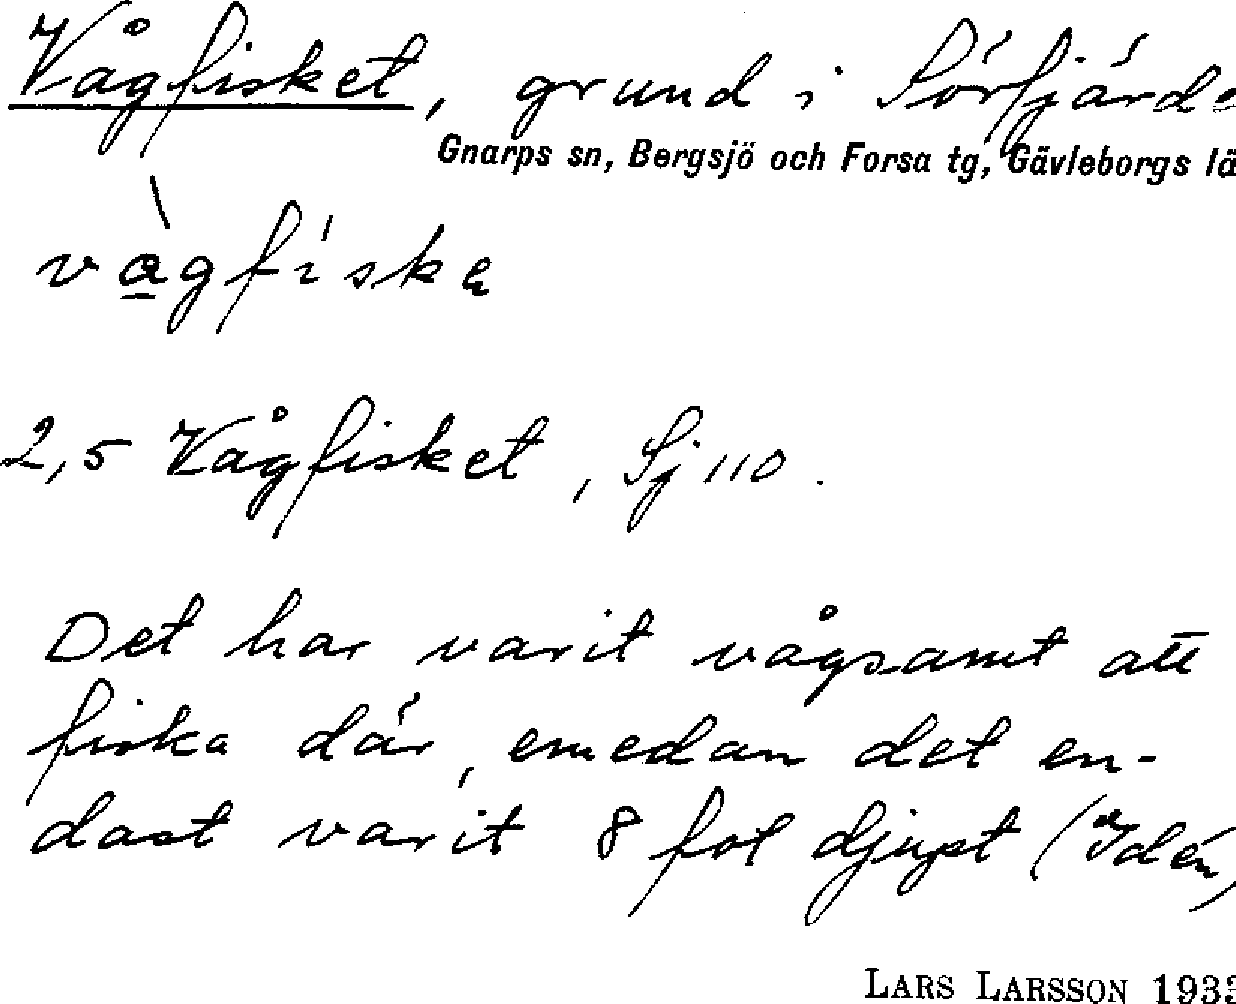 Vågfisket, grund i Sörfjärde
Gnarps sn, Bergsjö och Forsa tg, Gävleborgs lä
vàgfíske
2,5 Vågfisket, Sj 110.
Det har varit vågsamt att
fiska där, emedan det en-
dast varit 8 fot djupt (Idén)
LARS LARSSON 193